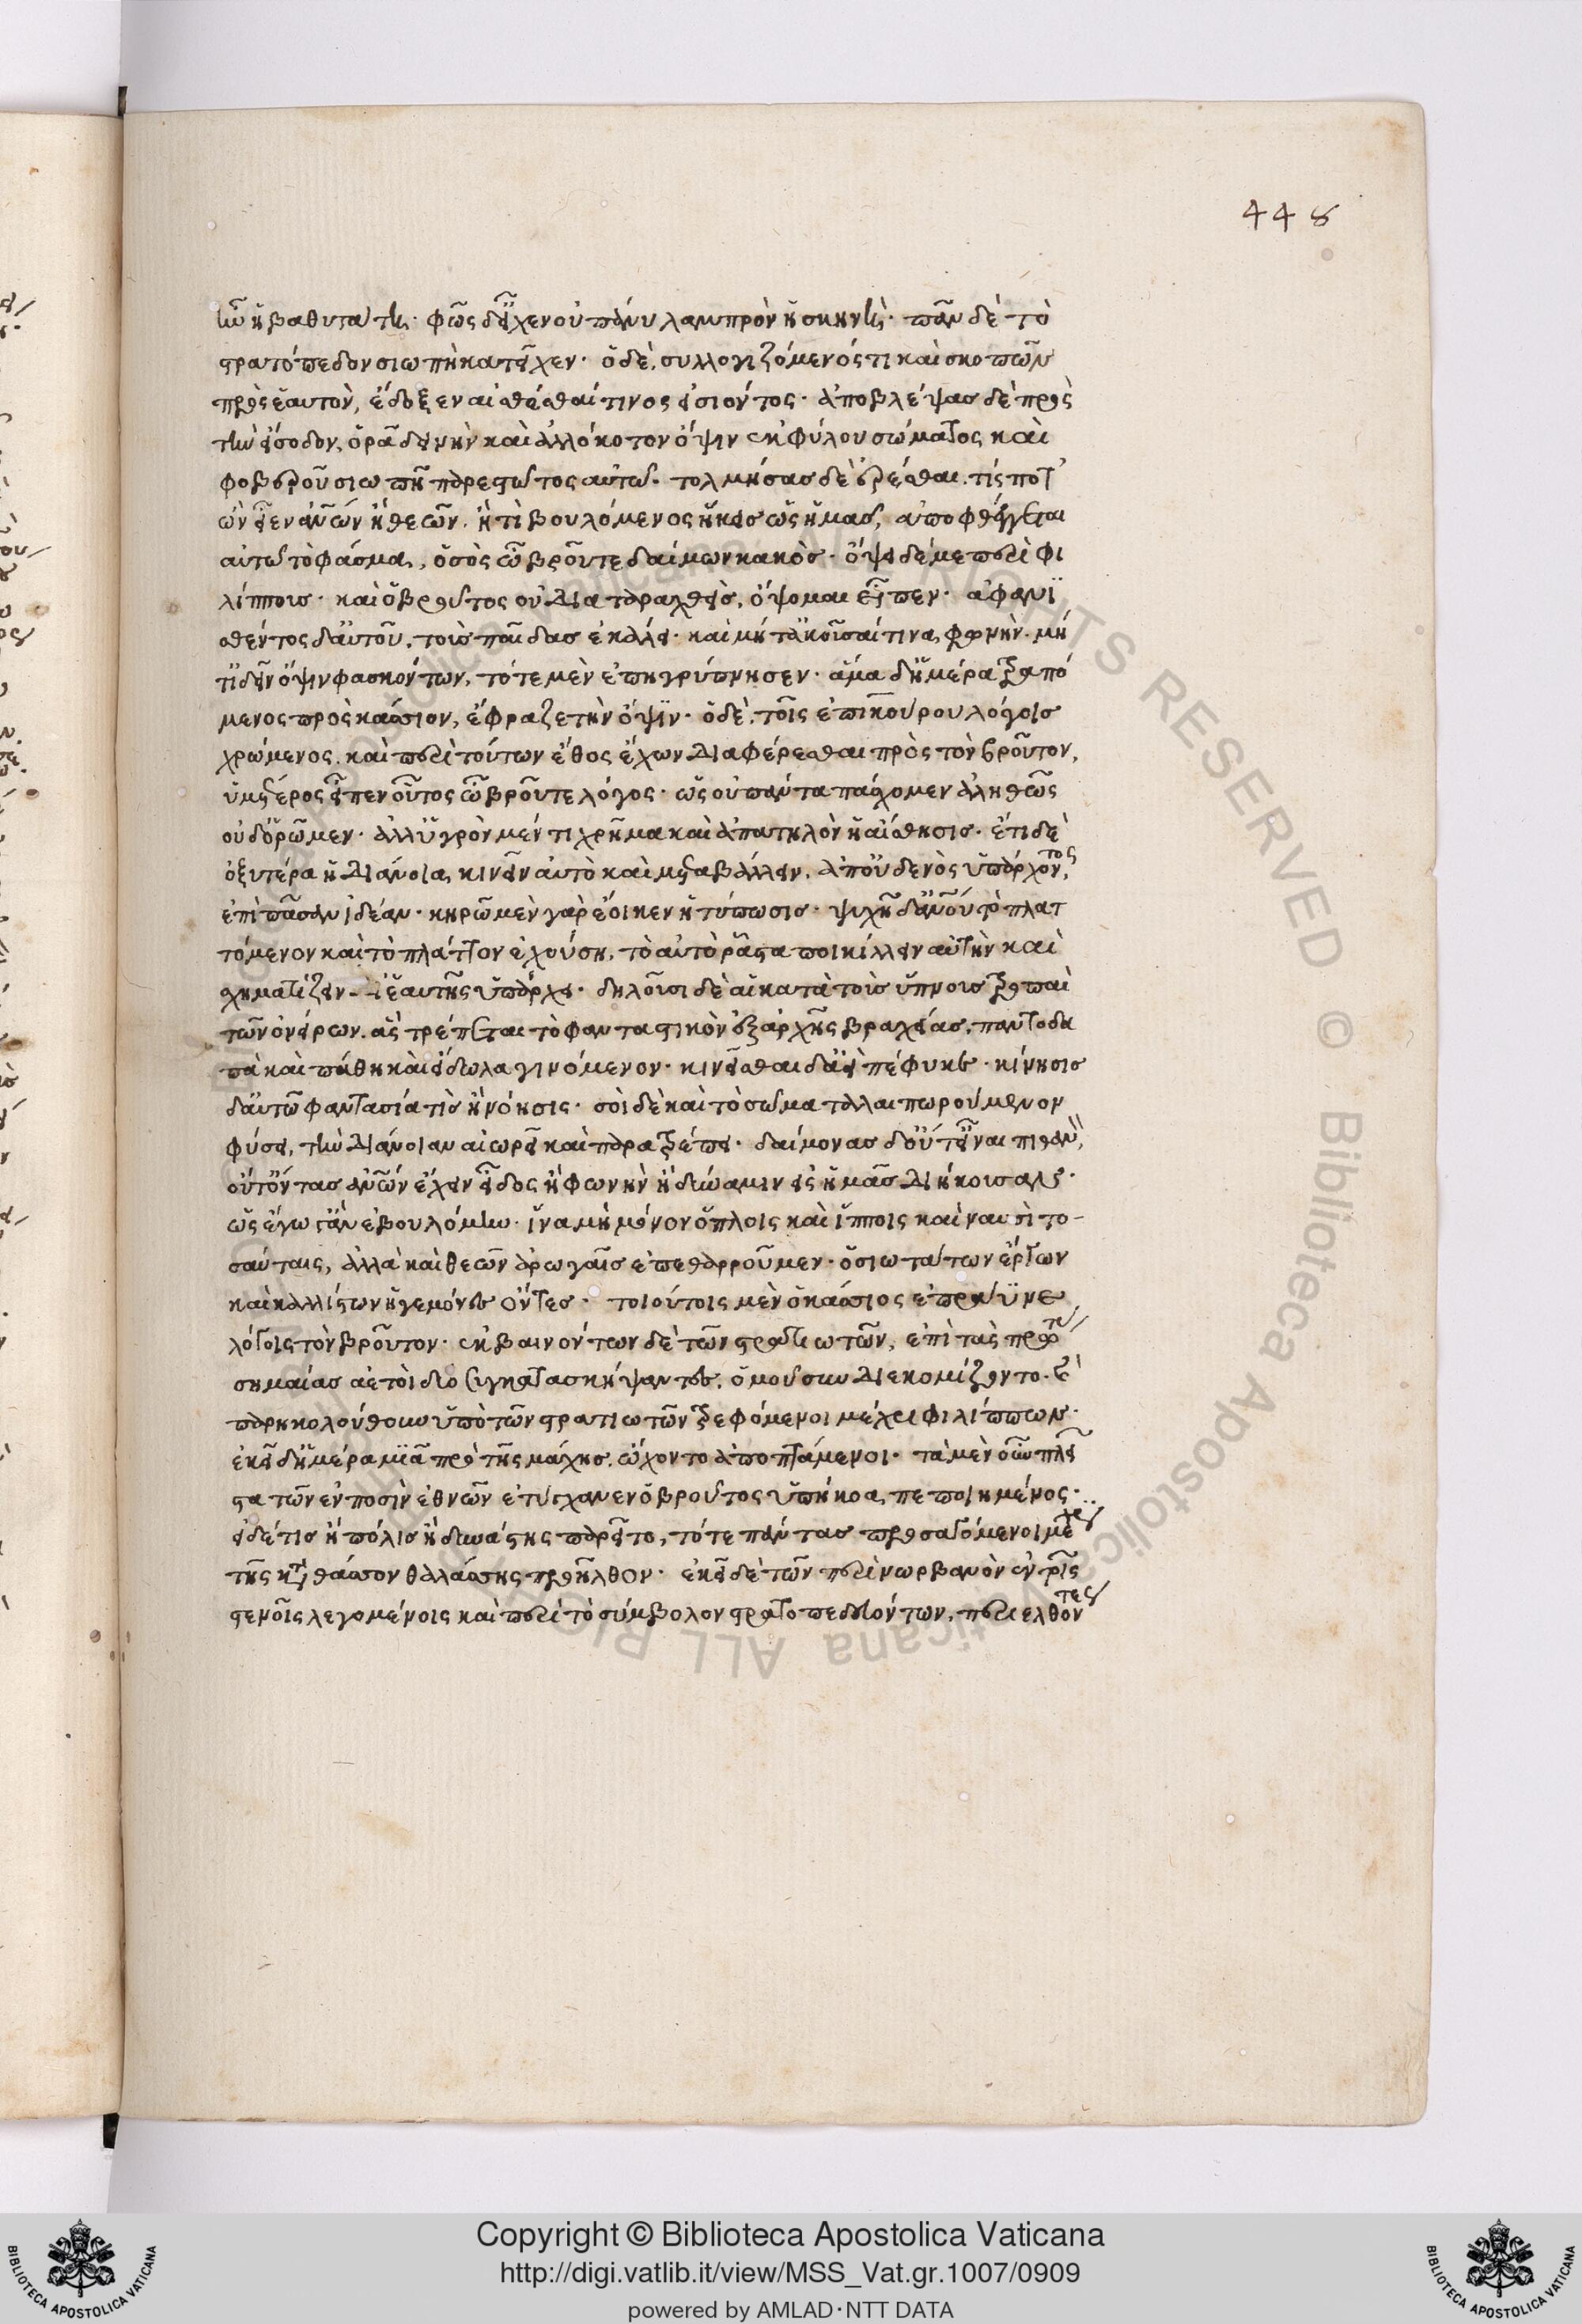 448
ἦν ἡ βαθυτάτη· φῶς δ' εἶχεν οὐ πάνυ λαμπρὸν ἡ σκηνὴ· πᾶν δὲ τὸ
στρατόπεδον σιωπὴ κατεῖχεν· ὁ δὲ, συλλογιζόμενός τι καὶ σκοπῶν
πρὸς ἑαυτὸν, ἔδοξεν αἰσθέσθαί τινος εἰσιόντος· ἀποβλέψας δὲ πρὸς
τὴν εἴσοδον, ὁρᾶ δεινὴν καὶ ἀλλόκοτον ὄψιν ἐκφύλου σώματος καὶ
φοβεροῦ σιωπῆ παρεστῶτος αὐτῶ· τολμήσας δὲ ἐρέσθαι. τίς ποτ'
ὢν εἶπεν ἀνθρώπων ἢ θεῶν. ἢ τί βουλόμενος ἥκεις ὡς ἡμᾶς, ἀποφθέγγεται
αὐτῶ τὸ φάσμα, ὁ σὸς ὦ βροῦτε δαίμων κακὸς· ὄψει δέ με περὶ φι
λίππους· καὶ ὁ βροῦτος οὐ διαταραχθεὶς, ὄψομαι εἶπεν· ἀφανι
σθέντος δ' αὐτοῦ, τοὺς παῖδας ἐκάλει· καὶ μήτ' ἀκοῦσαί τινα φωνὴν. μή
τ' ἰδεῖν ὄψιν φασκόντων, τότε μὲν ἐπηγρύπνησεν· ἅμα δ' ἡμέρα τραπό
μενος πρὸς κάσσιον, ἔφραζε τὴν ὄψιν· ὁ δὲ, τοῖς ἐπικούρου λόγοις
χρώμενος, καὶ περὶ τούτων ἔθος ἔχων διαφέρεσθαι πρὸς τὸν βροῦτον,
ἡμέτερος εἶπεν οὗτος ὦ βροῦτε λόγος· ὡς οὐ πάντα πάσχομεν ἀληθῶς
οὐδ' ὁρῶμεν· ἀλλ' ὑγρὸν μέν τι χρῆμα καὶ ἀπατηλὸν ἡ αἴσθησις· ἔτι δὲ
ὀξυτέρα ἡ διάνοια, κινεῖν αὐτὸ καὶ μεταβάλλειν, ἀπ' οὐδενὸς ὑπάρχοντος,
ἐπὶ πᾶσαν ἰδέαν· κηρῶ μὲν γὰρ ἔοικεν ἡ τύπωσις· ψυχῆ δ' ἀνθρώπου τὸ πλατ
τόμενον καὶ τὸ πλάττον ἐχούση, τὸ αὐτὸ ῥᾶστα ποικίλλειν αὑτὴν καὶ
σχηματίζειν δι' ἑαυτῆς ὑπάρχει· δηλοῦσι δὲ αἱ κατὰ τοὺς ὕπνους τροπαὶ
τῶν ὀνείρων. ἃς τρέπεται τὸ φανταστικὸν ἐξ ἀρχῆς βραχείας, παντοδα
πὰ καὶ πάθη καὶ εἴδωλα γινόμενον· κινεῖσθαι δ' ἀεὶ πέφυκε· κίνησις
δ' αὐτῶ φαντασία τὶς ἢ νόησις· σοὶ δὲ καὶ τὸ σῶμα ταλαιπωρούμενον
φύσει, τὴν διάνοιαν αἰωρεῖ καὶ παρατρέπει· δαίμονας δ' οὔτ' εἶναι πιθανὸν,
οὔτ' ὄντας ἀνθρώπων ἔχειν εἶδος ἢ φωνὴν ἢ δύναμιν εἰς ἡμᾶς διήκουσαν·
ὡς ἔγωγ' ἂν ἐβουλόμην· ἵνα μὴ μόνον ὅπλοις καὶ ἵπποις καὶ ναυσὶ το-
σαύταις, ἀλλὰ καὶ θεῶν ἀρωγαῖς ἐπεθαρροῦμεν· ὁσιωτάτων ἔργων
καὶ καλλίστων ἡγεμόνες ὄντες· τοιούτοις μὲν ὁ κάσσιος ἐπράϋνε
λόγοις τὸν βροῦτον· ἐκβαινόντων δὲ τῶν στρατιωτῶν, ἐπὶ τὰς πρώτας
σημαίας ἀετοὶ δύο συγκατασκήψαντες, ὁμοῦ συνδιεκομίζοντο· καὶ
παρηκολούθουν ὑπὸ τῶν στρατιωτῶν τρεφόμενοι μέχρι φιλίππων·
ἐκεῖ δ' ἡμέρα μιᾶ πρὸ τῆς μάχης, ὤχοντο ἀποπτάμενοι· τὰ μὲν οὖν πλεῖ
στα τῶν ἐν ποσὶν ἐθνῶν ἐτύγχανεν ὁ βροῦτος ὑπήκοα πεποιημένος·
εἰ δέ τις ἢ πόλις ἢ δυνάστης παρεῖτο, τότε πάντας προσαγόμενοι μέχρι
τῆς κατὰ θάσσον θαλάσσης προῆλθον· ἐκεῖ δὲ τῶν περὶ νωρβανὸν ἐν τοῖς
στενοῖς λεγομένοις καὶ περὶ τὸ σύμβολον στρατοπεδευόντων, περιελθόντες
Copyright © Biblioteca Apostolica Vaticana
http://digi.vatlib.it/view/MSS_Vat.gr.1007/0909
powered by AMLAD·NTT DATA